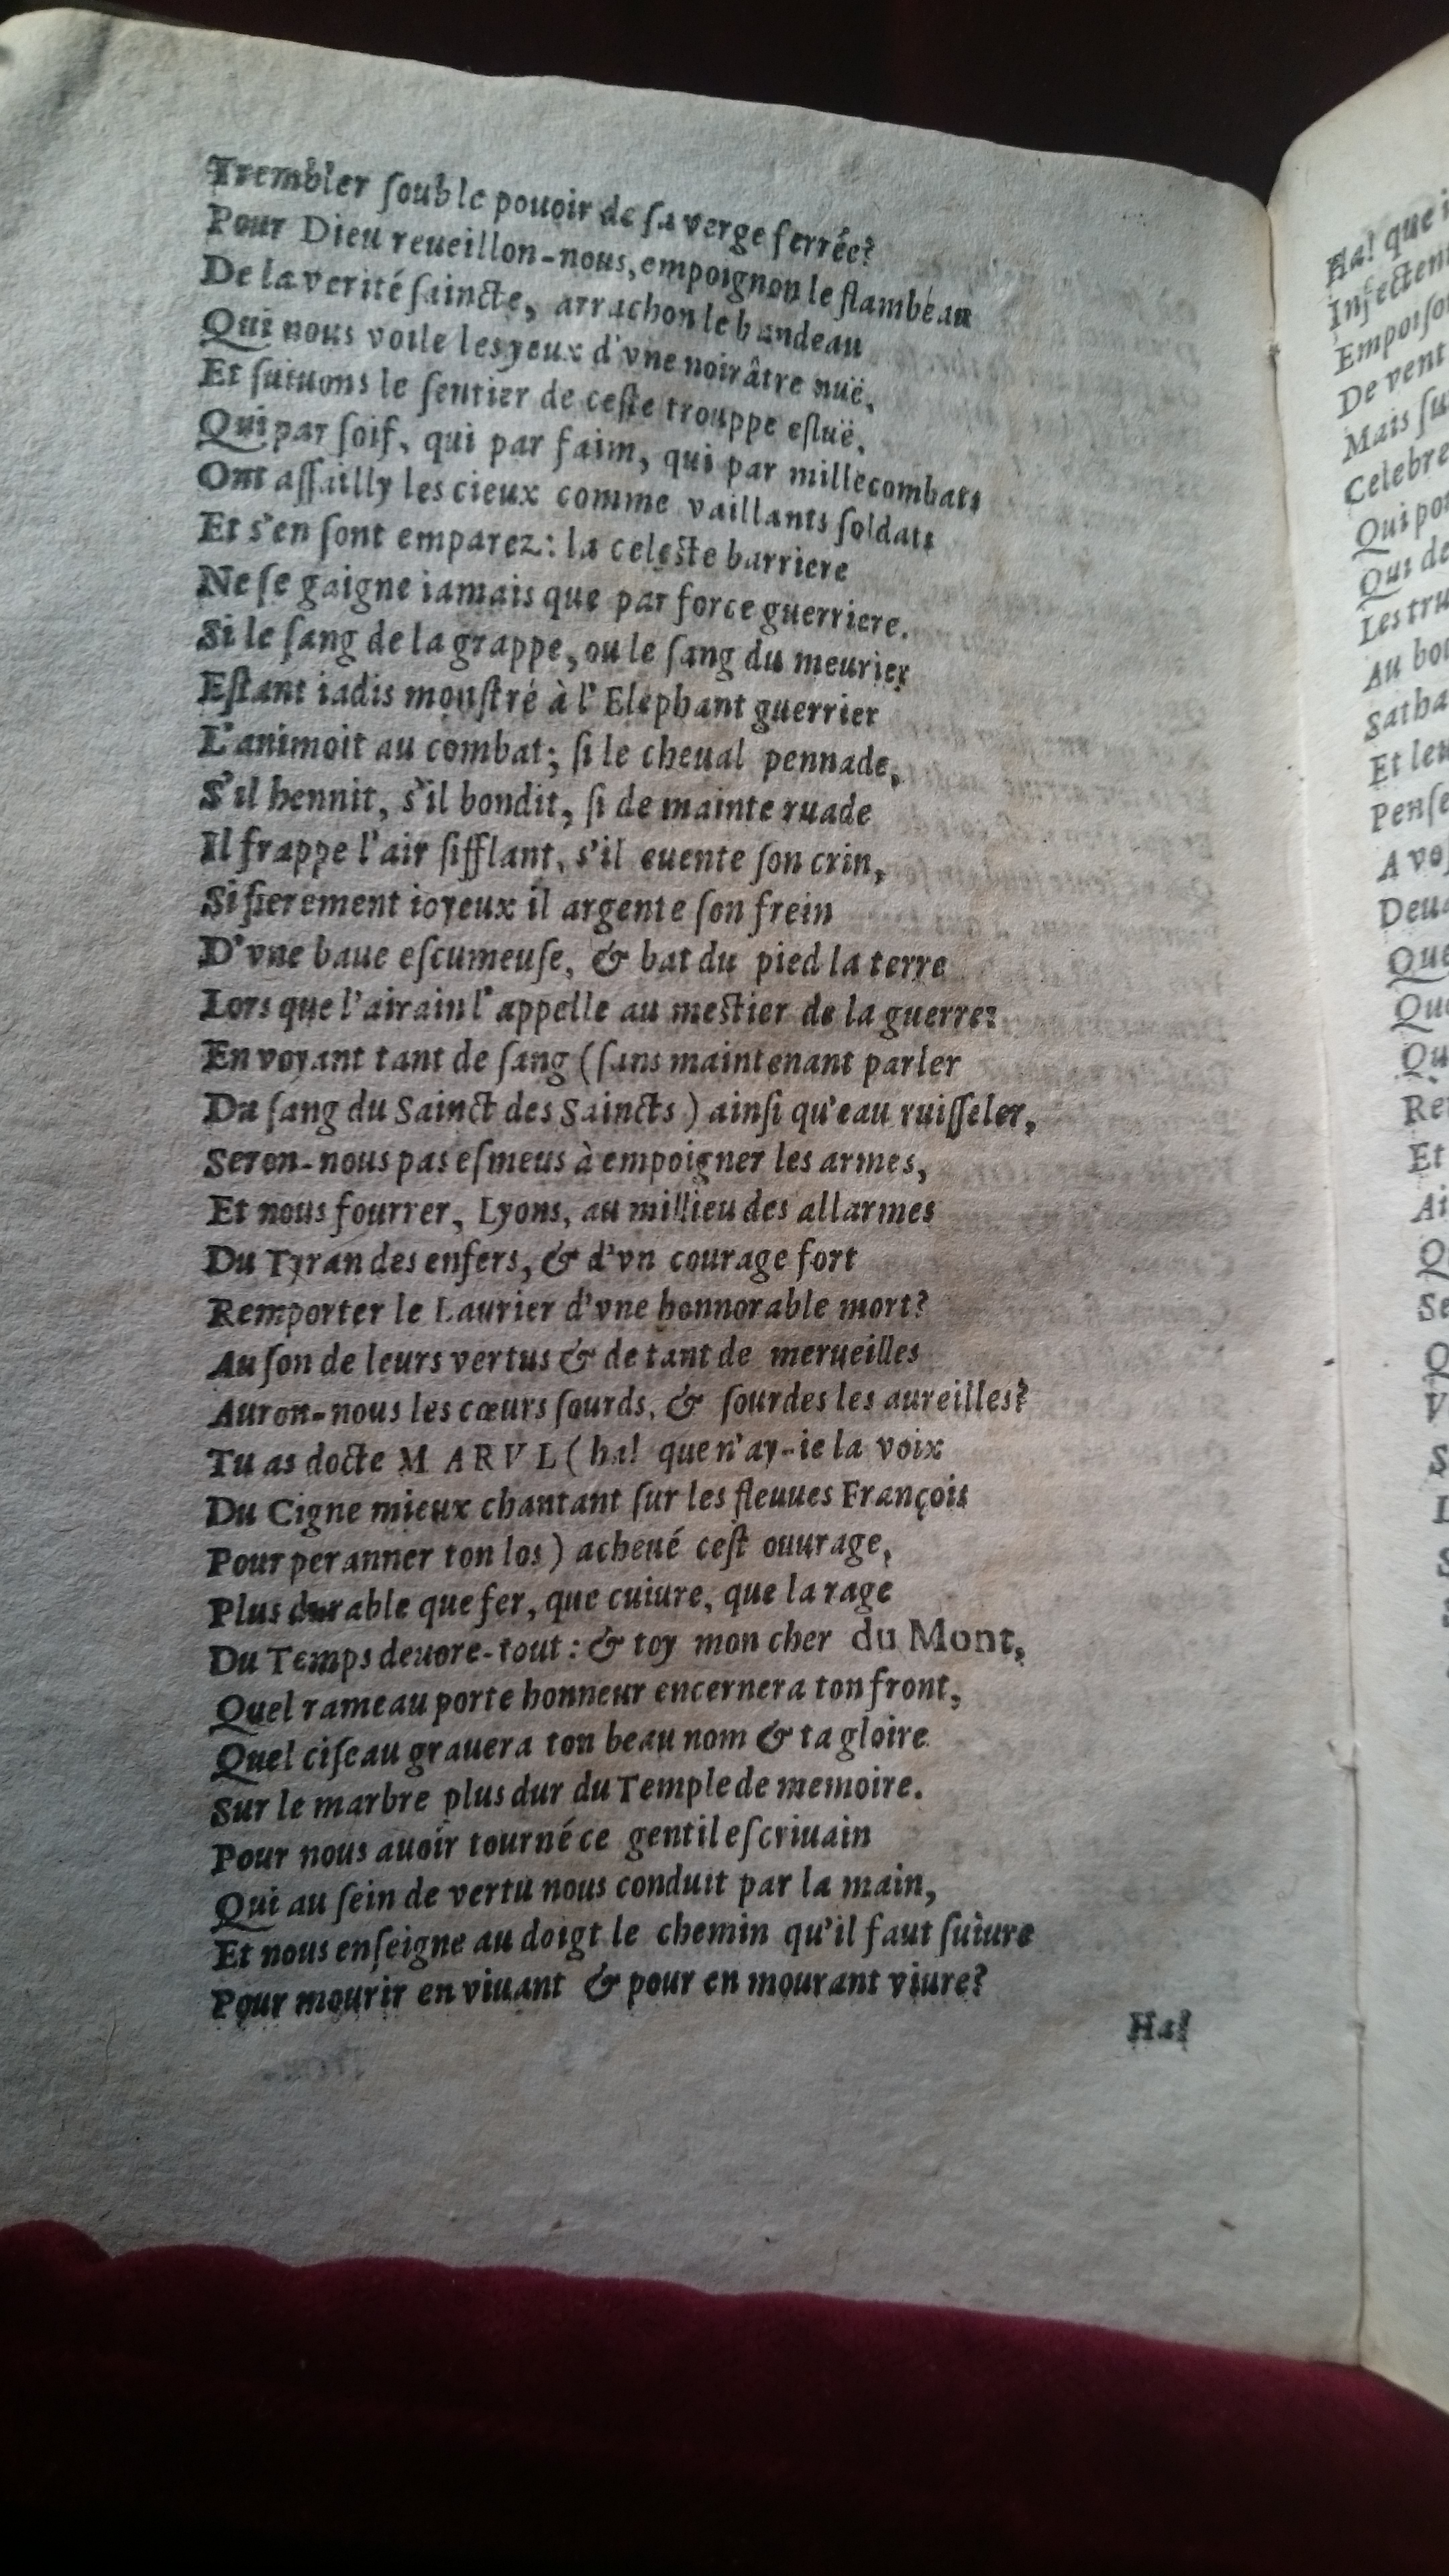 Trembler ſoub le pouoir de ſa verge ferrée?
Pour Dieu reueillon-nous, empoignon le flambeau
De la verité ſaincte, arrachon le bandeau
Qui nous voile les yeux d'vne noirâtre nuë,
Et ſuiuons le ſentier de ceſte trouppe eſluë,
Qui par ſoif, qui par faim, qui par mille combats
Ont aſſailly les cieux comme vaillants ſoldats
Et s'en ſont emparez: la celeſte barriere
Ne ſe gaigne iamais que par force guerriere.
Si le ſang de la grappe, ou le ſang du meurier
Eſtant iadis monſtré à l'Elephant guerrier
L'animoit au combat; ſi le cheual pennade,
S'il hennit, s'il bondit, ſi de mainte ruade
Il frappe l'air ſifflant, s'il euente ſon crin,
Si fierement ioyeux il argente ſon frein
D'vne baue eſcumeuſe, & bat du pied la terre
Lors que l'airain l'appelle au meſtier de la guerre:
En voyant tant de ſang (ſans maintenant parler
Du ſang du Sainct des Saincts) ainſi qu'eau ruiſſeler,
Seron-nous pas eſmeus à empoigner les armes,
Et nous fourrer, Lyons, au millieu des allarmes
Du Tyran des enfers, & d'vn courage fort
Remporter le Laurier d'vne honnorable mort?
Au ſon de leurs vertus & de tant de merueilles
Auron-nous les cœurs ſourds, & ſourdes les aureilles?
Tu as docte MARVL (ha! que n'ay-ie la voix
Du Cigne mieux chantant ſur les fleuues François
Pour peranner ton los) acheué ceſt ouurage,
Plus durable que fer, que cuiure, que la rage
Du Temps deuore-tout: & toy mon cher du Mont,
Quel rameau porte honneur encernera ton front,
Quel ciſeau grauera ton beau nom & ta gloire
Sur le marbre plus dur du Temple de memoire.
Pour nous auoir tourné ce gentil eſcriuain
Qui au ſein de vertu nous conduit par la main,
Et nous enſeigne au doigt le chemin qu'il faut ſuiure
Pour mourir en viuant & pour en mourant viure?
Ha!
Ha! que
Infectent
De vent
Mais
Celebre
Qui
Qui de
Au
Et
A
Que
Que
Et